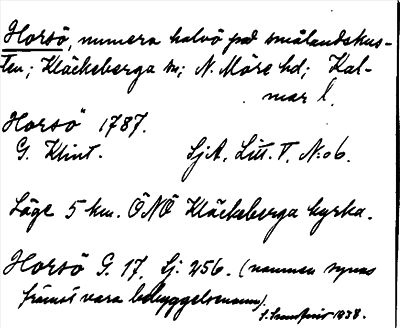 Horsö, numera halvö på smålandskus-
ten; Kläckeberga sn; N. Möre hd; Kal-
mar l.
Horsö 1787.
G. Klint. SjA. Litt. V, N:o 6.
Läge 5 km. ÖNÖ Kläckeberga kyrka.
Horsö G. 17, Sj: 256. (namnen synas
främst vara bebyggelsenamn).
1938.